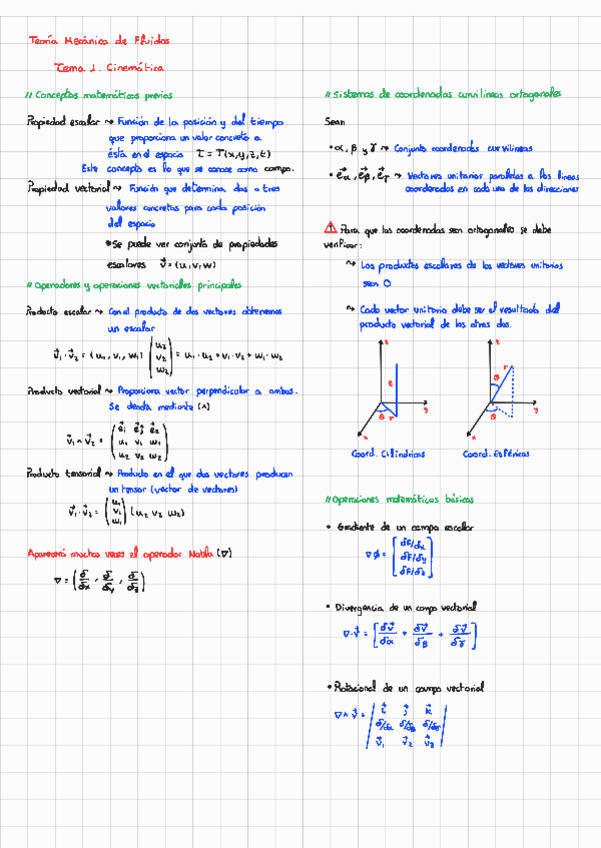 Teoría Mecánica de Fluidos
Tema 1. Cinemática
// Conceptos matemáticos previos
Propiedad escalar ⇝ Función de la posición y del tiempo
que proporciona un valor concreto a
ésta en el espacio τ = T(x,y,z,t)
Este concepto es lo que se conoce como campo.
Propiedad vectorial ⇝ Función que determina dos o tres
valores concretos para cada posición
del espacio
*Se puede ver conjunto de propiedades
escalares v⃗ = (u,v,w)
// Operadores y operaciones vectoriales principales
Producto escalar ⇝ Con el producto de dos vectores obtenemos
un escalar
v⃗₁ · v⃗₂ = (u₁, v₁, w₁) (u₂ v₂ w₂) = u₁·u₂ + v₁·v₂ + w₁·w₂
Producto vectorial ⇝ Proporciona vector perpendicular a ambos.
Se denota mediante (∧)
v⃗₁ ∧ v⃗₂ = (e⃗₁ e⃗₂ e⃗₂
u₁ v₁ w₁
u₂ v₂ w₂)
Producto tensorial ⇝ Producto en el que dos vectores producen
un tensor (vector de vectores)
v⃗₁ · v⃗₂ = (u₁ v₁ w₁) (u₂ v₂ w₂)
Aparecerá muchas veces el operador Nabla (∇)
∇ = (δ/δx, δ/δy, δ/δz)
// Sistemas de coordenadas curvilíneas ortogonales
Sean
• α, β y γ ⇝ Conjunto coordenadas curvilíneas
• e⃗α, e⃗β, e⃗γ ⇝ Vectores unitarios paralelos a las líneas
coordenadas en cada una de las direcciones
⚠ Para que las coordenadas sean ortogonales se debe
verificar:
⇝ Los productos escalares de los vectores unitarios
sean 0
⇝ Cada vector unitario debe ser el resultado del
producto vectorial de los otros dos.
z
y
x
θ
r
z
y
x
θ
r
Coord. Cilíndricas
Coord. Esféricas
// Operaciones matemáticas básicas
• Gradiente de un campo escalar
∇φ = [δF/δx
δF/δy
δF/δz]
• Divergencia de un campo vectorial
∇·v⃗ = [δv⃗/δα + δv⃗/δβ + δv⃗/δγ]
• Rotacional de un campo vectorial
∇∧v⃗ = | i j k
δ/δα δ/δβ δ/δγ
v⃗₁ v⃗₂ v⃗₂ |